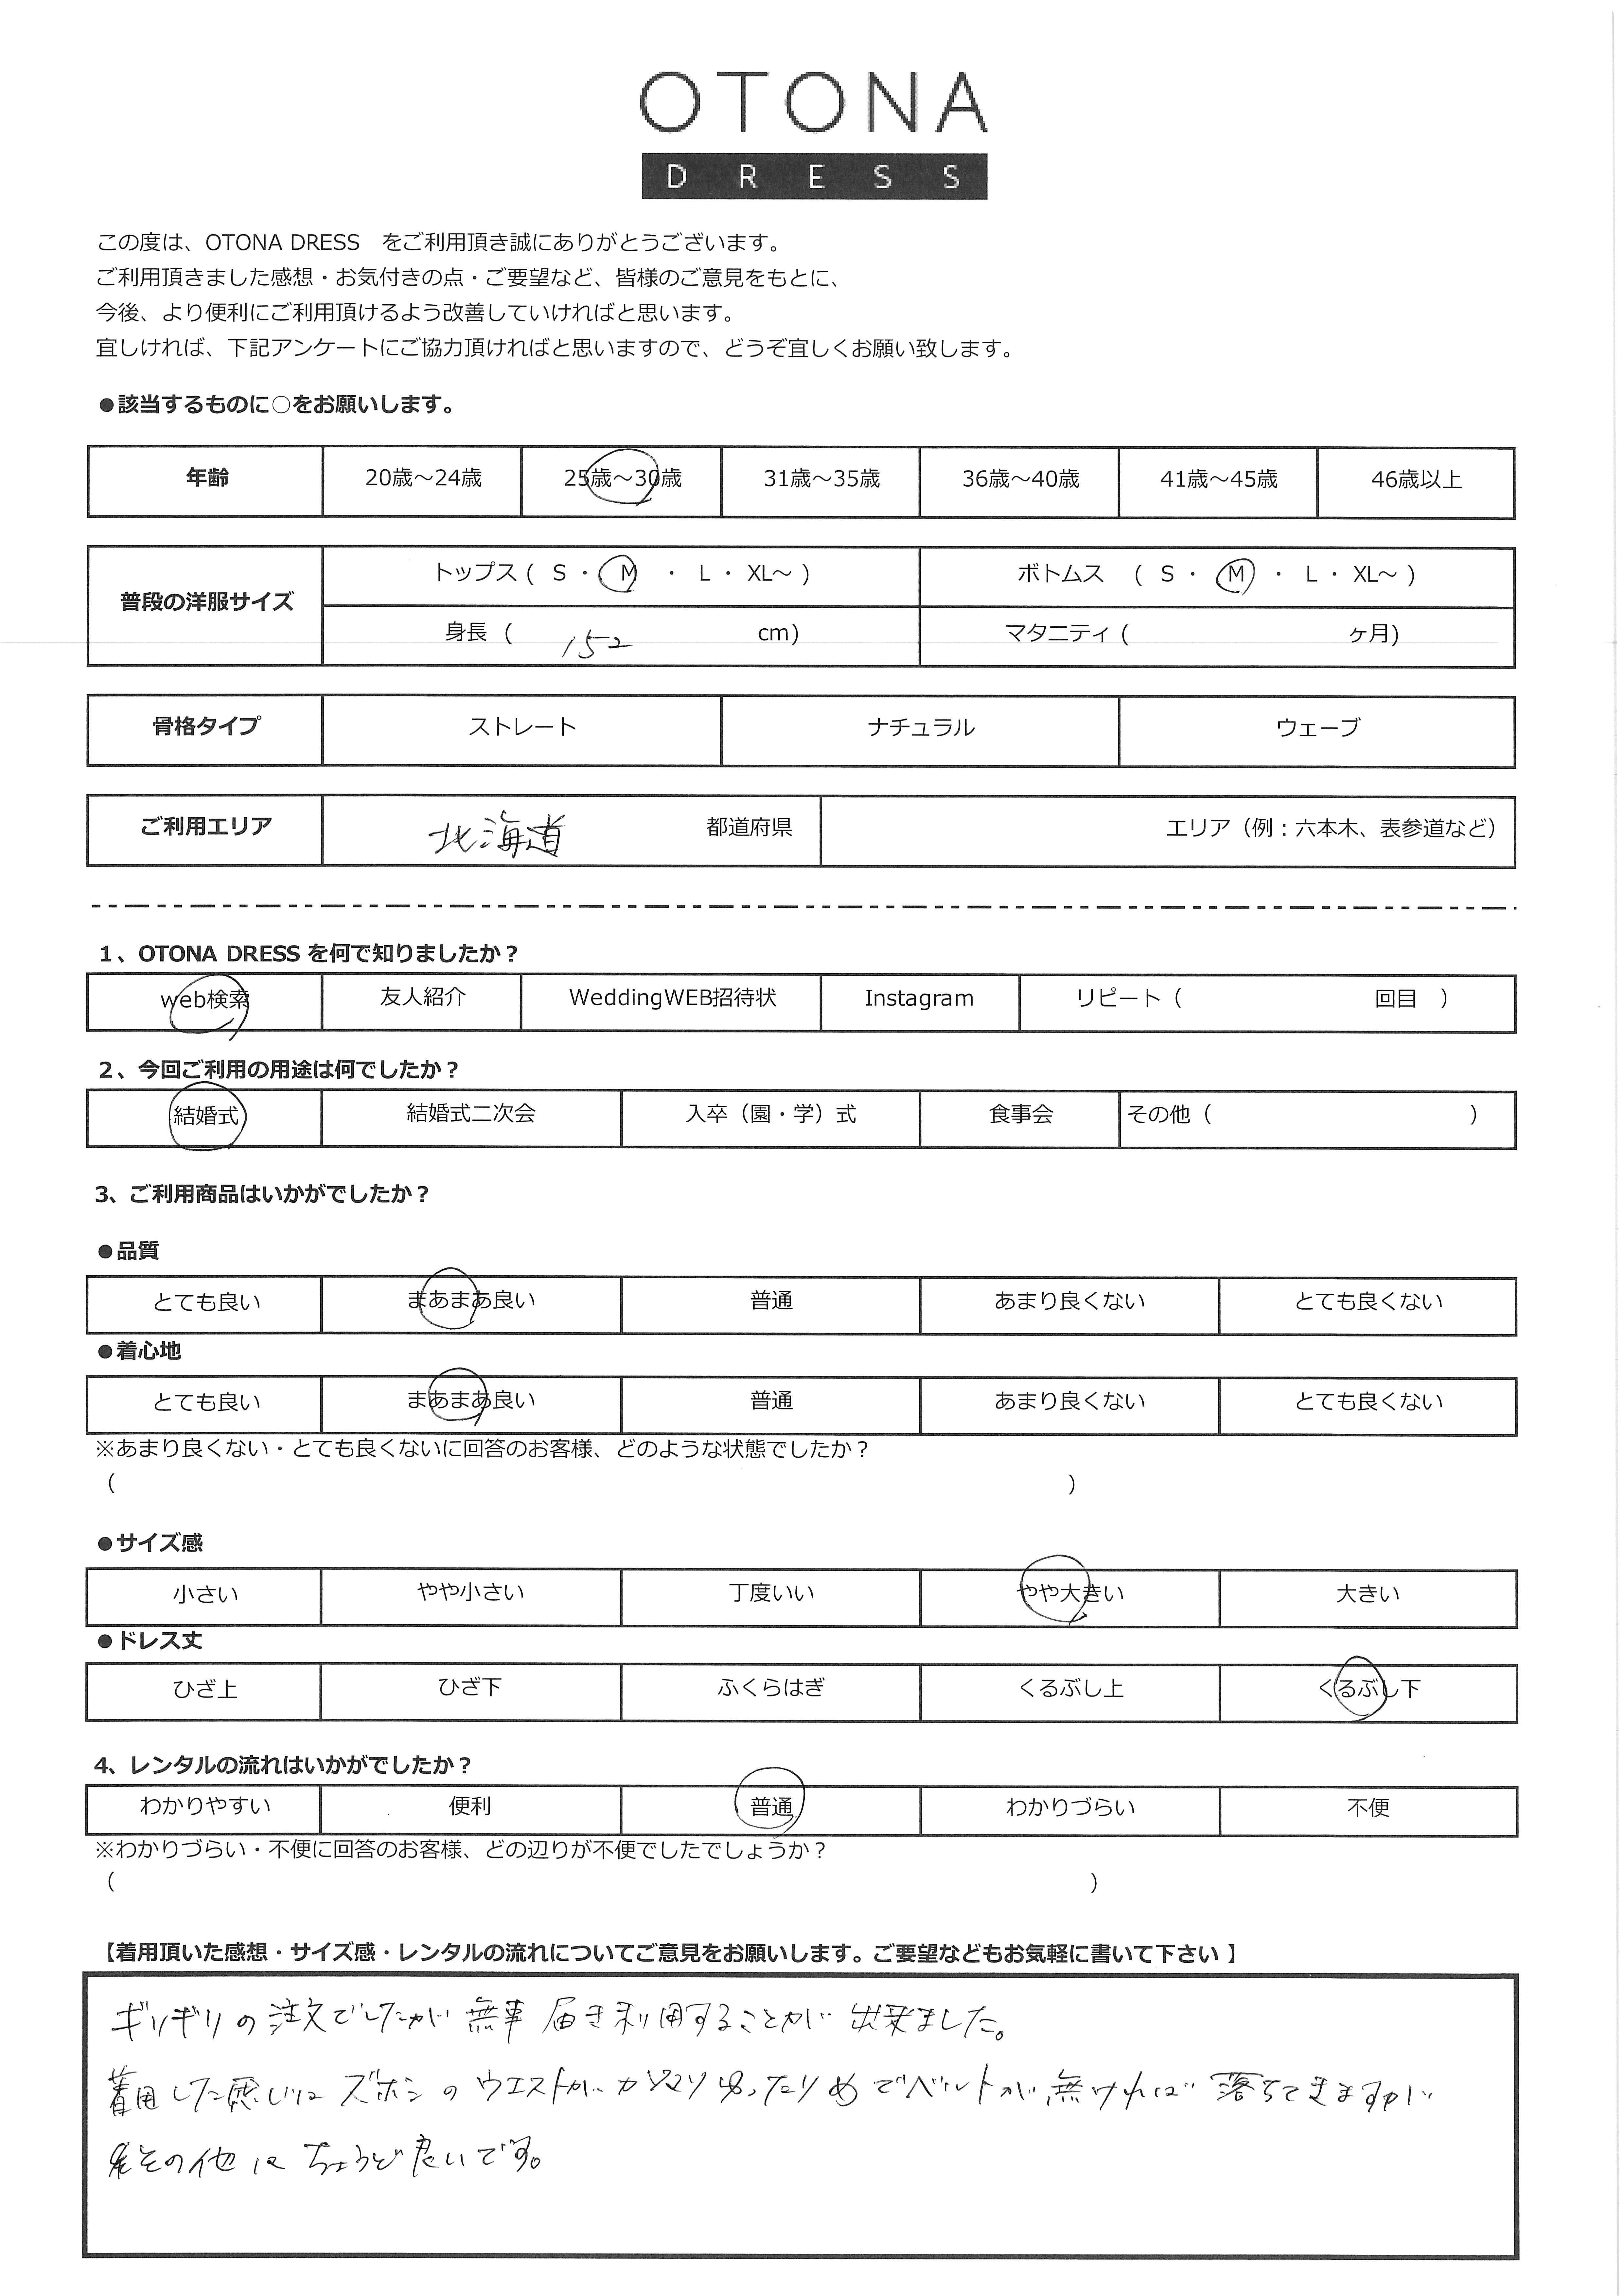 OTONA
DRESS
この度は、OTONA DRESS をご利用頂き誠にありがとうございます。
ご利用頂きました感想・お気付きの点・ご要望など、皆様のご意見をもとに、
今後、より便利にご利用頂けるよう改善していければと思います。
宜しければ、下記アンケートにご協力頂ければと思いますので、どうぞ宜しくお願い致します。
●該当するものに○をお願いします。
年齢 20歳～24歳 25歳～30歳 31歳～35歳 36歳～40歳 41歳～45歳 46歳以上
普段の洋服サイズ
トップス ( S ・ M ・ L ・ XL～ ) ボトムス ( S ・ M ・ L ・ XL～ )
身長 ( 152 cm) マタニティ ( ヶ月)
骨格タイプ ストレート ナチュラル ウェーブ
ご利用エリア 北海道 都道府県 エリア（例：六本木、表参道など）
1、OTONA DRESS を何で知りましたか？
web検索 友人紹介 WeddingWEB招待状 Instagram リピート（ 回目 ）
2、今回ご利用の用途は何でしたか？
結婚式 結婚式二次会 入卒（園・学）式 食事会 その他（ ）
3、ご利用商品はいかがでしたか？
●品質
とても良い まあまあ良い 普通 あまり良くない とても良くない
●着心地
とても良い まあまあ良い 普通 あまり良くない とても良くない
※あまり良くない・とても良くないに回答のお客様、どのような状態でしたか？
（ ）
●サイズ感
小さい やや小さい 丁度いい やや大きい 大きい
●ドレス丈
ひざ上 ひざ下 ふくらはぎ くるぶし上 くるぶし下
4、レンタルの流れはいかがでしたか？
わかりやすい 便利 普通 わかりづらい 不便
※わかりづらい・不便に回答のお客様、どの辺りが不便でしたでしょうか？
（ ）
【着用頂いた感想・サイズ感・レンタルの流れについてご意見をお願いします。ご要望などもお気軽に書いて下さい 】
ギリギリの注文でしたが無事届き利用することが出来ました。
着用した感じは ズボンのウエストが かなりゆったりめでベルトが無ければ落ちてきますが
その他はちょうど良いです。